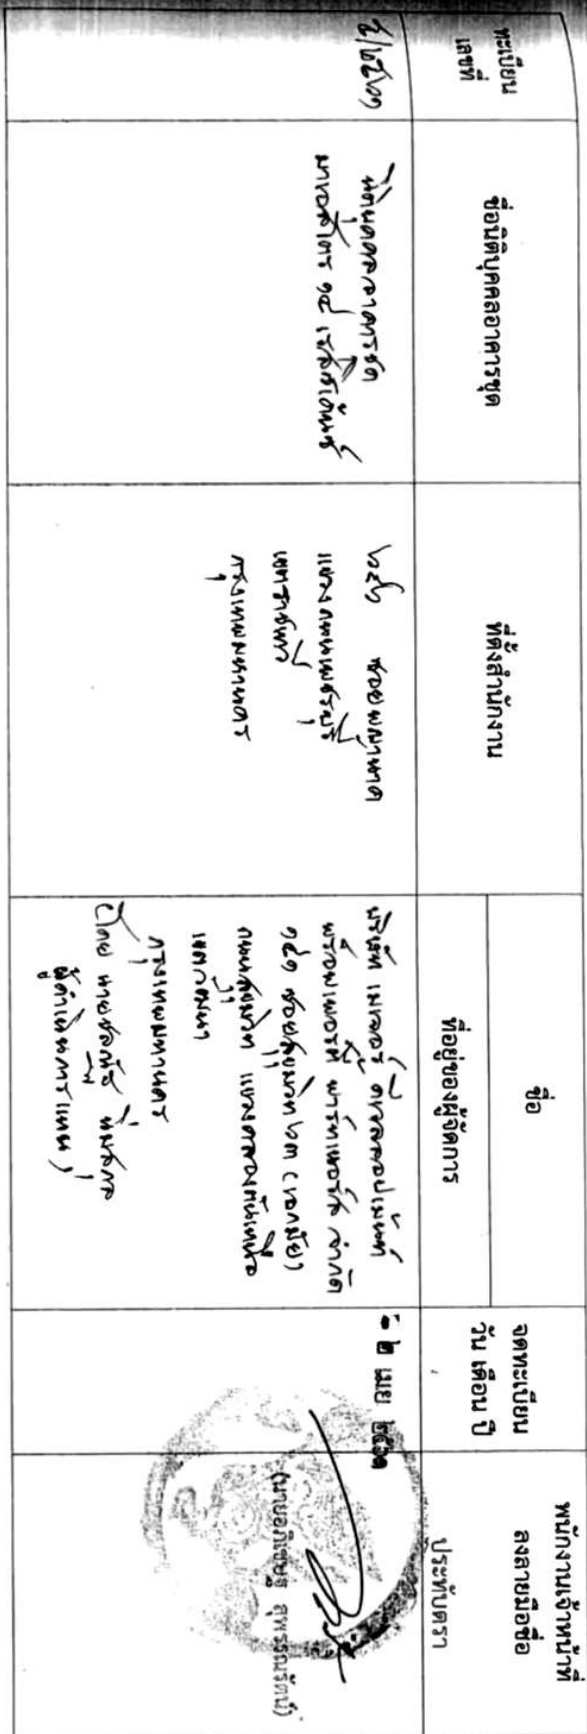 ทะเบียน
เลขที่
ชื่อนิติบุคคลอาคารชุด
ที่ตั้งสำนักงาน
ชื่อ
ที่อยู่ของผู้จัดการ
จดทะเบียน
วัน เดือน ปี
พนักงานเจ้าหน้าที่
ลงลายมือชื่อ
ประทับตรา
นิติบุคคลอาคารชุด
มาเอสโตร ๑๔ เรสซิเด้นซ์
ซอยพญานาค
แขวงถนนเพชรบุรี
เขตราชเทวี
กรุงเทพมหานคร
บริษัท เมเจอร์ ดีเวลลอปเม้นท์
พร็อพเพอร์ตี้ พาร์ทเนอร์ส จำกัด
๑๔๑ ซอยสุขุมวิท ๖๓ (เอกมัย)
ถนนสุขุมวิท แขวงคลองตันเหนือ
เขตวัฒนา
กรุงเทพมหานคร
โดย นาย
ผู้ดำเนินการแทน)
๒ เมย ๒๕๖๑
(นายอภิเชษฐ สุพรรณรัตน์)